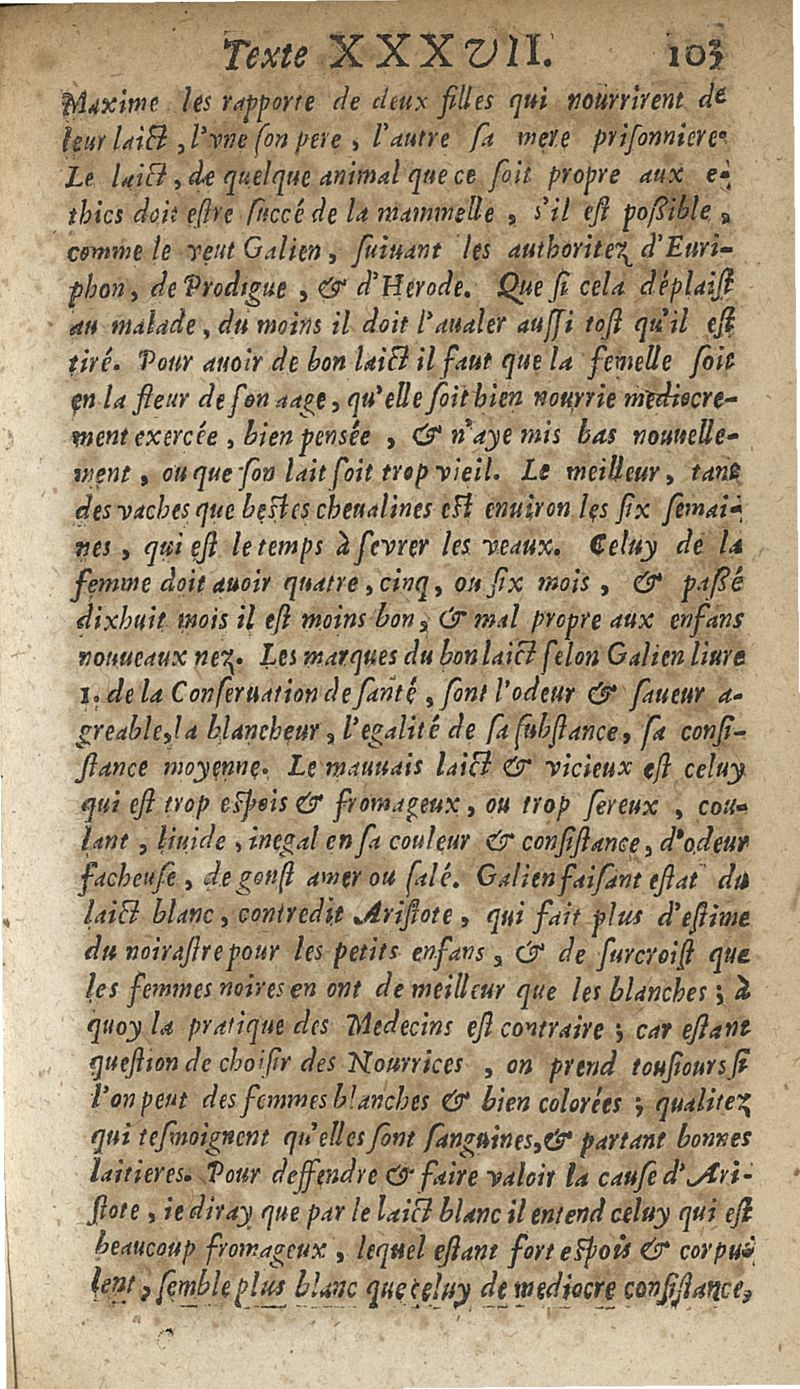 Texte XXXVII. 103
Maxime les rapporte de deux filles qui nourrirent de
leur laict, l'vne son pere, l'autre sa mere prisonniere.
Le laict, de quelque animal que ce soit propre aux e-
thics doit estre succé de la mammelle, s'il est possible,
comme le veut Galien, suiuant les authoritez d'Euri-
phon, de Prodigue, & d'Herode. Que si cela déplaist
au malade, du moins il doit l'aualer aussi tost qu'il est
tiré. Pour auoir de bon laict il faut que la femelle soit
en la fleur de son aage, qu'elle soit bien nourrie mediocre-
ment exercée, bien pensée, & n'aye mis bas nouuelle-
ment, ou que son lait soit trop vieil. Le meilleur, tant
des vaches que bestes cheualines est enuiron les six semai-
nes, qui est le temps à sevrer les veaux. Celuy de la
femme doit auoir quatre, cinq, ou six mois, & passé
dixhuit mois il est moins bon, & mal propre aux enfans
nouueaux nez. Les marques du bon laict selon Galien liure
1. de la Conseruation de santé, sont l'odeur & saueur a-
greable, la blancheur, l'egalité de sa substance, sa consi-
stance moyenne. Le mauuais laict & vicieux est celuy
qui est trop espois & fromageux, ou trop sereux, cou-
lant, liuide, inegal en sa couleur & consistance, d'odeur
facheuse, de goust amer ou salé. Galien faisant estat du
laict blanc, contredit Aristote, qui fait plus d'estime
du noirastre pour les petits enfans, & de surcroist que
les femmes noires en ont de meilleur que les blanches; à
quoy la pratique des Medecins est contraire; car estant
question de choisir des Nourrices, on prend tousiours si
l'on peut des femmes blanches & bien colorées; qualitez
qui tesmoignent qu'elles sont sanguines, & partant bonnes
laitieres. Pour deffendre & faire valoir la cause d'Ari-
stote, ie diray que par le laict blanc il entend celuy qui est
beaucoup fromageux, lequel estant fort espois & corpu-
lent, semble plus blanc que celuy de mediocre consistance,